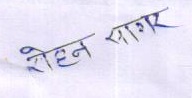 रोहन सागर